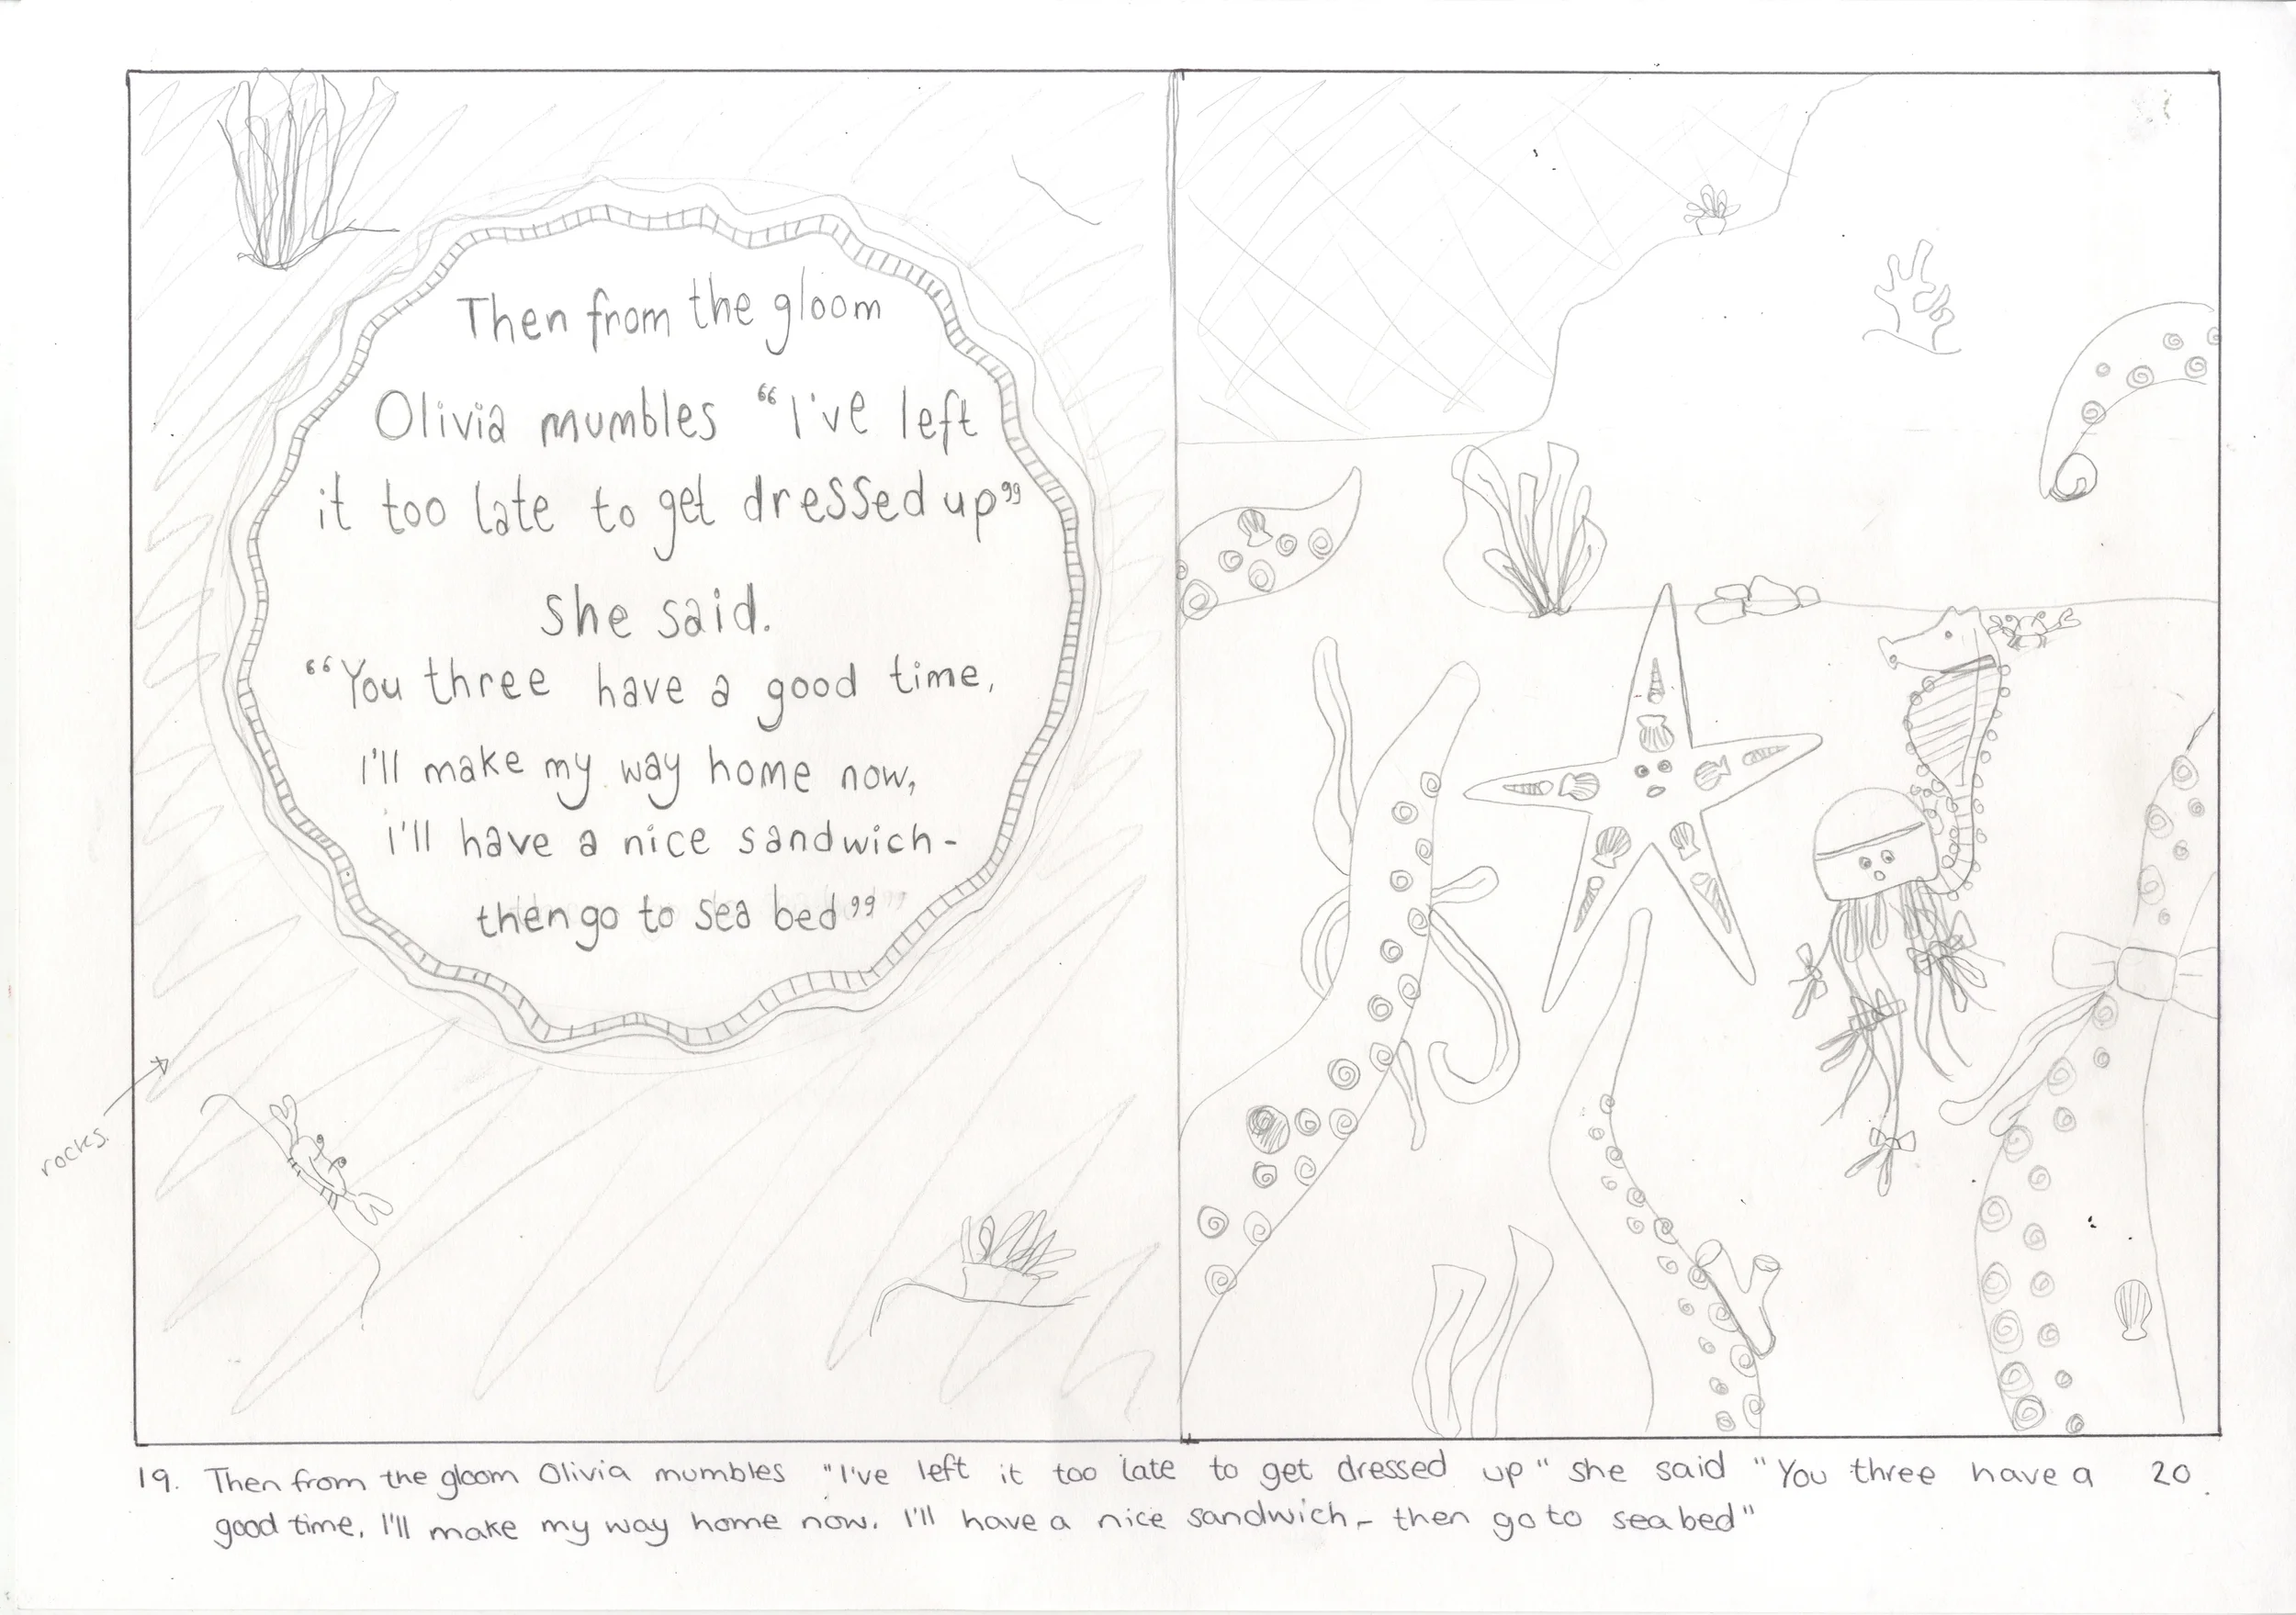 Then from the gloom
Olivia mumbles “I've left
it too late to get dressed up”
she said.
“You three have a good time,
I'll make my way home now,
I'll have a nice sandwich-
then go to sea bed”
rocks.
19. Then from the gloom Olivia mumbles "I've left it too late to get dressed up" she said "You three have a 20.
good time, I'll make my way home now. I'll have a nice sandwich- then go to sea bed"